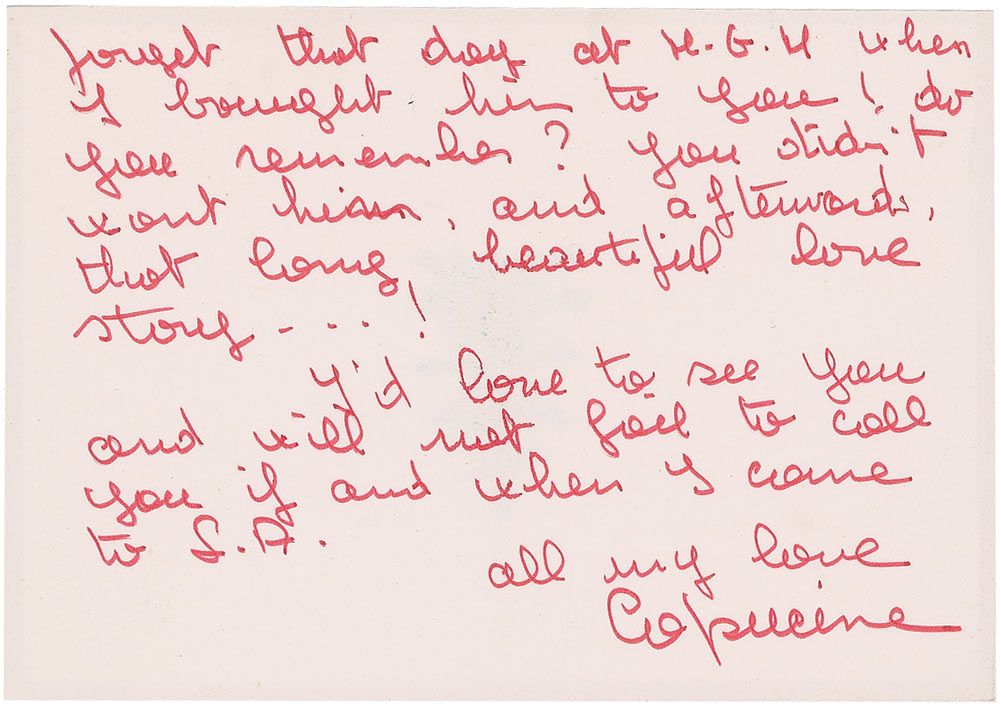 forget that day at M.G.M when
I bought him to you! do
you remember? you didn't
want him, and afterwards,
that long, beautiful love
story - ... !
I'd love to see you
and will not fail to call
you if and when I come
to L.A.
all my love
Capucine